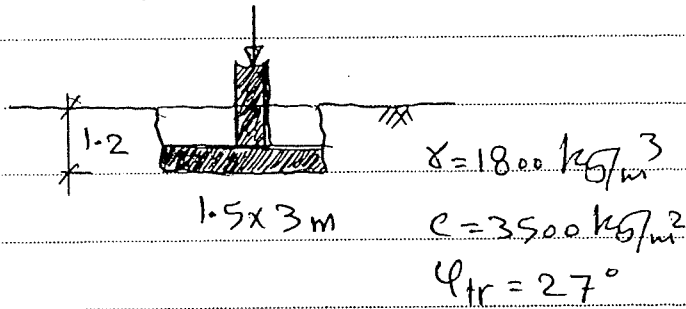 1.2
1.5 x 3 m
γ = 1800 kg/m³
c = 3500 kg/m²
φtr = 27°